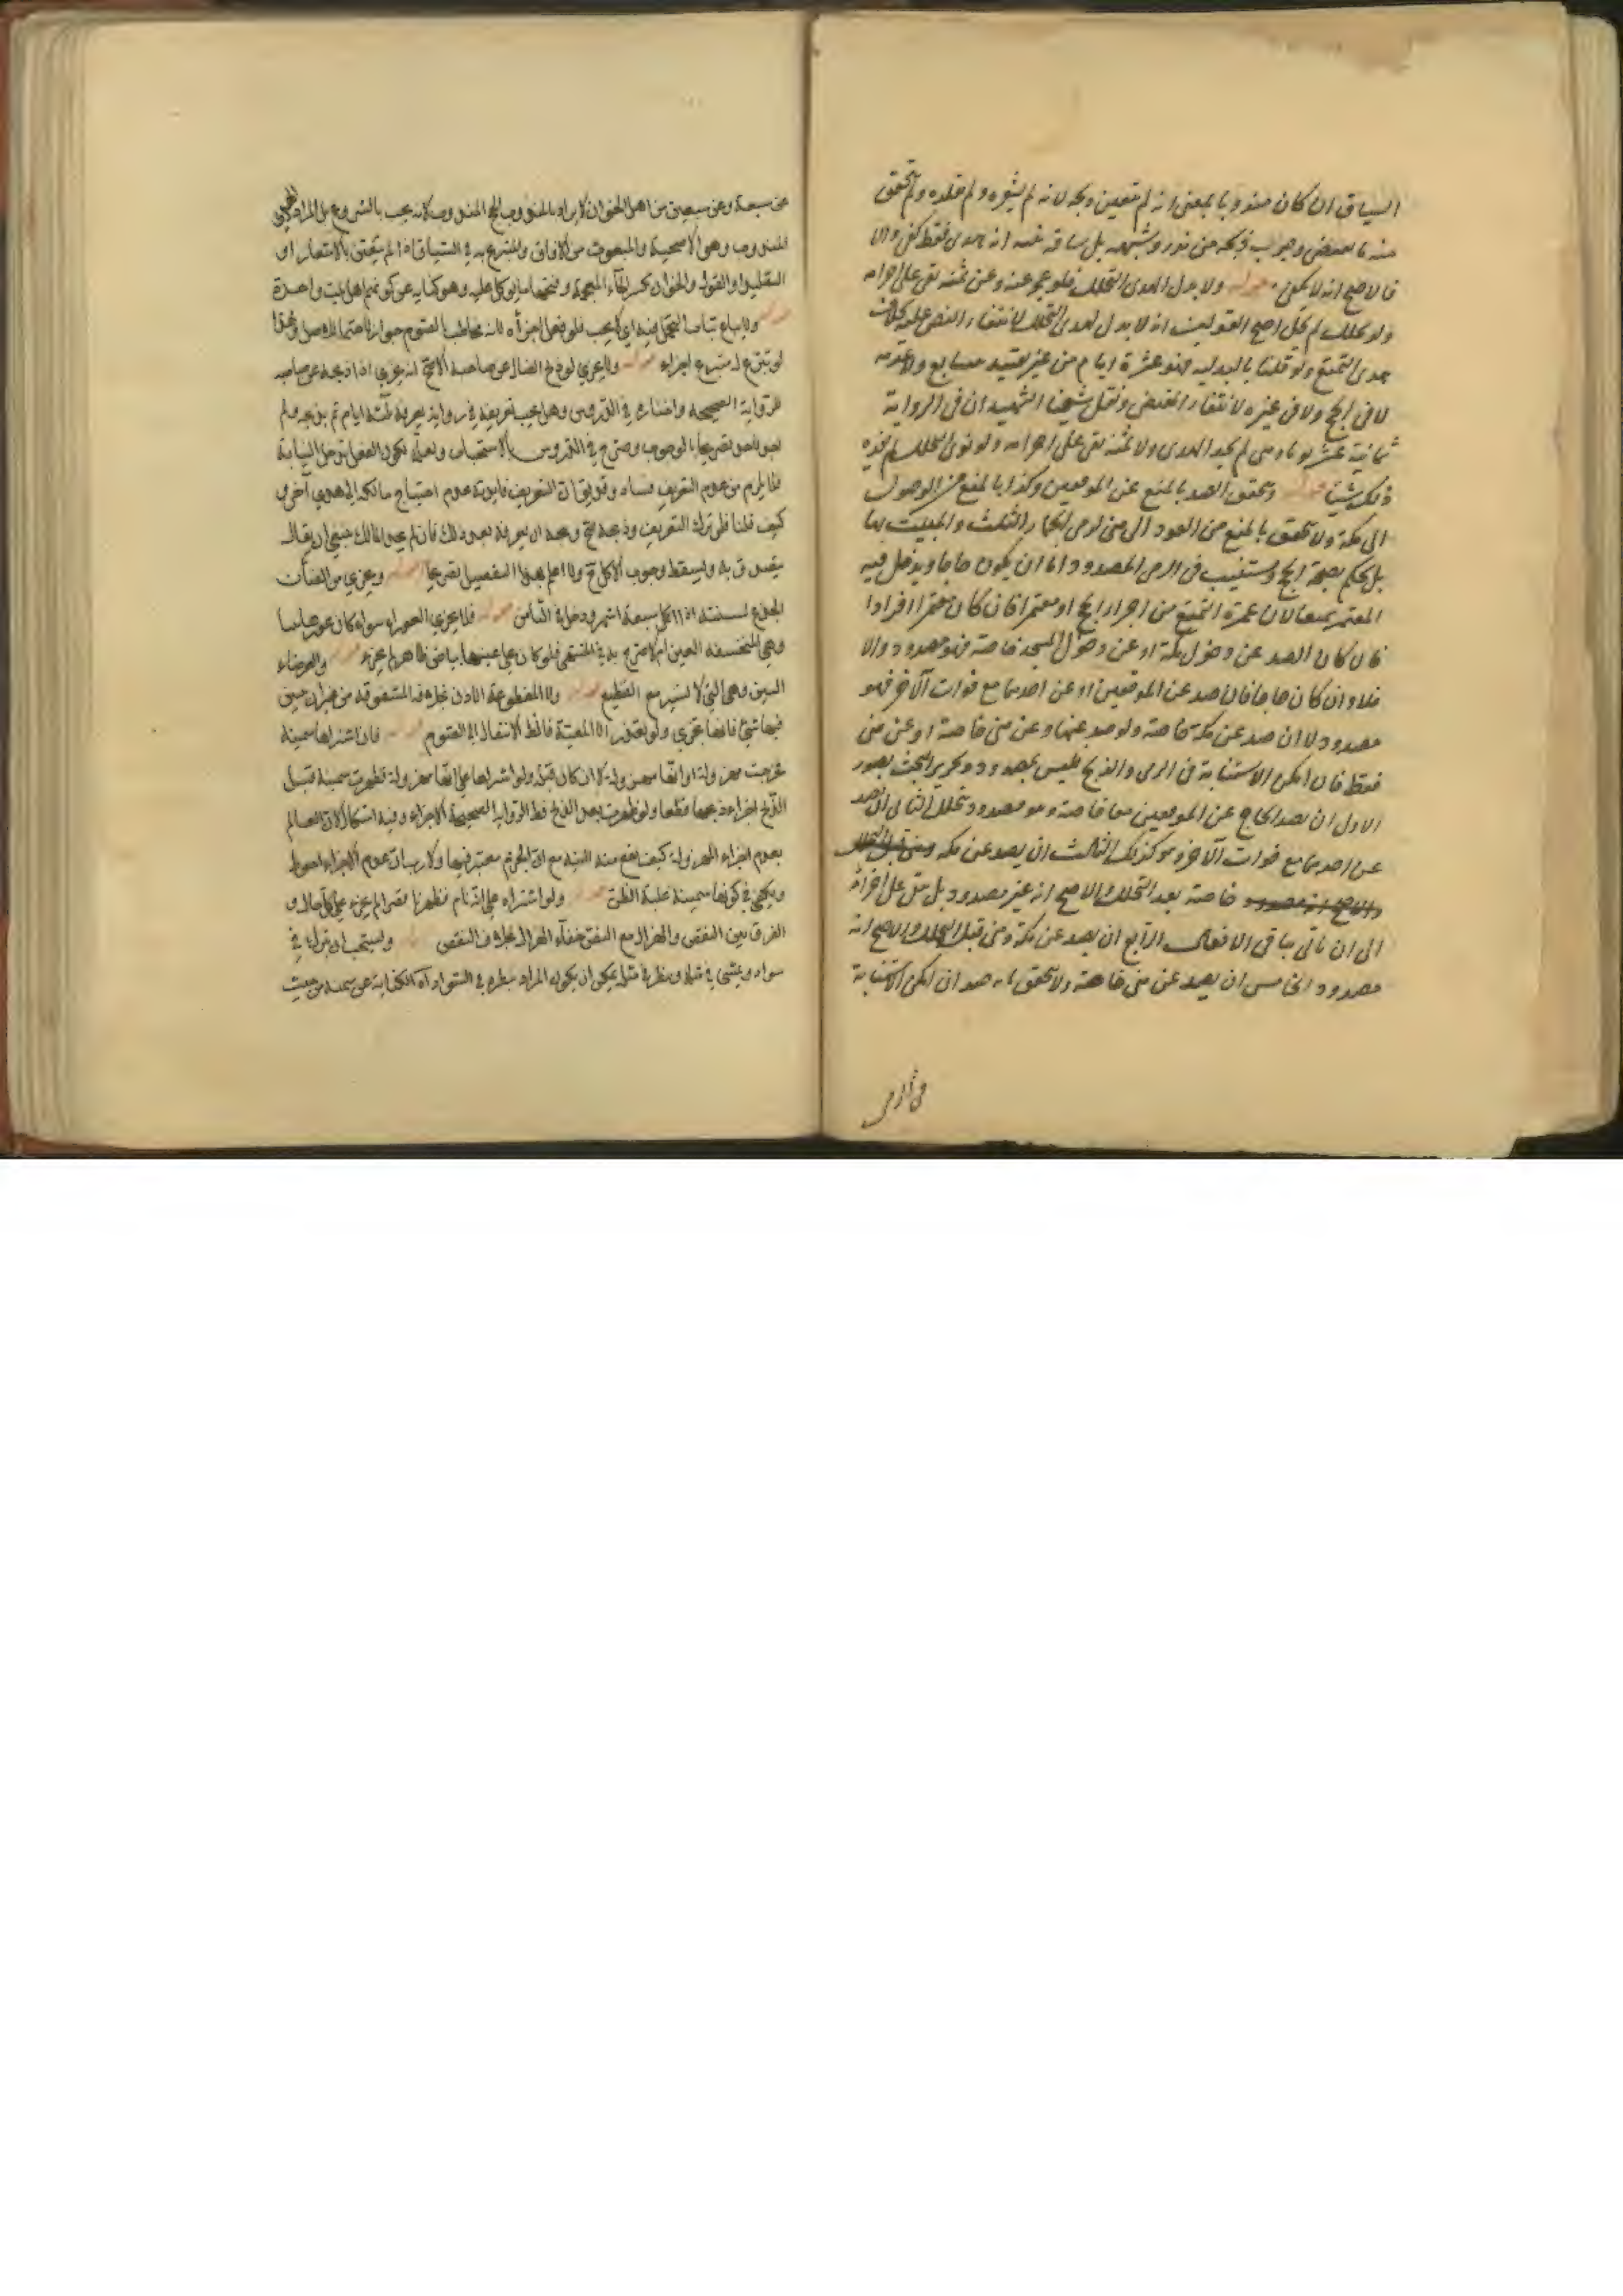 السياق ان كان مندوبا بمعنى انه لم يتعين ذبحه لانه لم يشعره ولم يقلده ولم يتحقق
منه ما يقتضي وجوب ذبحه من نذر وشبهه بل ساقه بنية انه هدى فقط كفى والا
فالاصح انه لا يكفى قوله ولا بدل لهدى التحلل فلو عجز عنه وعن ثمنه بقى على احرامه
ولو تحلل لم يحل اصح القولين انه لا بدل لهدى التحلل لانتفاء النص عليه بخلاف
هدى التمتع ولو قلنا بالبدلية فهو عشرة ايام من غير تقييد
لا فى الحج ولا فى غيره لانتفاء المقتضى ونقل شيخنا الشهيد ان فى الرواية
ثمانية عشر يوما ومن لم يجد الهدى ولا ثمنه بقى على احرامه ولو نوى التحلل لم يفده
ذلك شيئا قوله ويتحقق الصد بالمنع عن الموقفين وكذا بالمنع من الوصول
الى مكة ولا يتحقق بالمنع من العود الى منى لرمى الجمار الثلث والمبيت بها
بل يحكم بصحة الحج ويستنيب فى الرمى المصدود اما ان يكون حاجا ويدخل فيه
المعتمر تمتعا لان عمرة التمتع من اجزاء الحج او معتمرا فان كان معتمرا افرادا
فان كان الصد عن دخول مكة او عن دخول المسجد خاصة فهو مصدود والا
فلا وان كان حاجا فان صد عن الموقفين او عن احدهما مع فوات الآخر فهو
مصدود لا ان صد عن مكة خاصة ولو صد عنها وعن منى خاصة او عن منى
فقط فان امكن الاستنابة فى الرمى والذبح فليس بمصدود وتحرير البحث بصور
الاول ان يصد الحاج عن الموقفين معا خاصة وهو مصدود يتحلل الثانى ان يصد
عن احدهما مع فوات الآخر وهو كذلك الثالث ان يصد عن مكة
خاصة بعد التحلل والاصح انه غير مصدود بل يبقى على احرامه
الى ان ياتى بباقى الافعال الرابع ان يصد عن مكة ومنى قبل التحلل والاصح انه
مصدود الخامس ان يصد عن منى خاصة ولا يتحقق صد ان امكن الاستنابة
فى الرمى
عن سبعة وعن سبعين من اهل الخوان لا يراد بالمندوب الحج المندوب لانه يجب بالشروع بل المراد الهدى
المندوب وهو الاضحية والمبعوث من الآفاق والمتبرع به فى السياق اذا لم يتعين بالاشعار او
التقليد والقول والخوان بكسر الخاء المعجمة وضمها ما يؤكل عليه وهو كناية عن كونهم اهل بيت واحدة
قوله ولا يباع ثياب التجمل فيه اى لا يجب فلو فعل اجزأه لانه مخاطب بالصوم
لو تبرع له متبرع اجزاء قوله ولا يجزى لو ذبح الضال عن صاحبه الاصح انه يجزى اذا ذبحه عن صاحبه
للرواية الصحيحة واختاره فى الدروس وهل يجب تعريفه فى رواية يعرفه ثلثة ايام ثم يذبحه ولم
تصريحا بالوجوب وصرح فى الدروس بالاستحباب
فلا يلزم من عدم التعريف فساده وقد يق ان التعريف فايدته عدم احتياج مالكه الى هدى آخر
كيف قلنا فلو ترك التعريف وذبحه صح ويجب ان يعرفه بعد ذلك فان لم يجد المالك فينبغى ان يقال
يتصدق به ويسقط وجوب الاكل ح ولا اعلم بهذا التفصيل تصريحا قوله ويجزى من الضأن
الجذع لسنته اذا اكمل سبعة اشهر ودخل فى الثامن قوله فلا يجزى العوراء سواء كان عورها
وهى المنخسفة العين كما صرح به فى المنتهى فلو كان على عينها بياض ظاهر لم يجزء قوله والعرجاء
البين وهى التى لا تسير مع القطيع قوله ولا المقطوعة الاذن بخلاف المشقوقة
فانها تجزى ولو تعذر الا المعيبة فالظ الانتقال الى الصوم قوله فان اشتراها سمينة
فخرجت مهزولة او انها مهزولة لا ان كان قبله ولو اشتراها على انها مهزولة فظهرت سمينة قبل
الذبح اجزاء ذبحها قطعا ولو ظهرت بعد الذبح فظ الرواية الصحيحة الاجزاء وفيه اشكال لان العالم
بعدم اجزاء المهزولة كيف يقع منه النية مع ان الجزم معتبر فيها ولا ريب ان عدم الاجزاء احوط
ويكفى فى كونها سمينة غلبة الظن قوله ولو اشتراه على انه تام فظهر ناقصا لم يجزء على كل حال و
الفرق بين النقص والهزال مع النص خفاء الهزال بخلاف النقص قوله ويستحب ان تبرك فى
سواد ويمشى فى مثله وينظر فى مثله يمكن ان يكون المراد